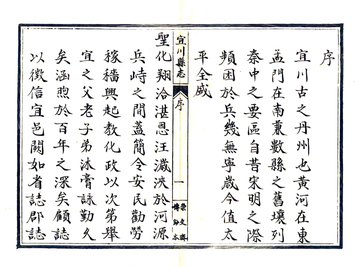 序
宜川古之丹州也黃河在東
孟門在南兼數縣之舊壤列
秦中之要區自昔宋明之際
頻困於兵幾無寧歲今值太
平全盛
宜川縣志
序
一
聖化翔洽湛恩汪濊浹於河源
兵峙之間蓋簡令安民勸勞
稼穡興起教化政以次第舉
宜之父老子弟沐膏詠勤久
矣涵煦於百年之深矣顧誌
以徵信宜邑闕如省誌郡誌